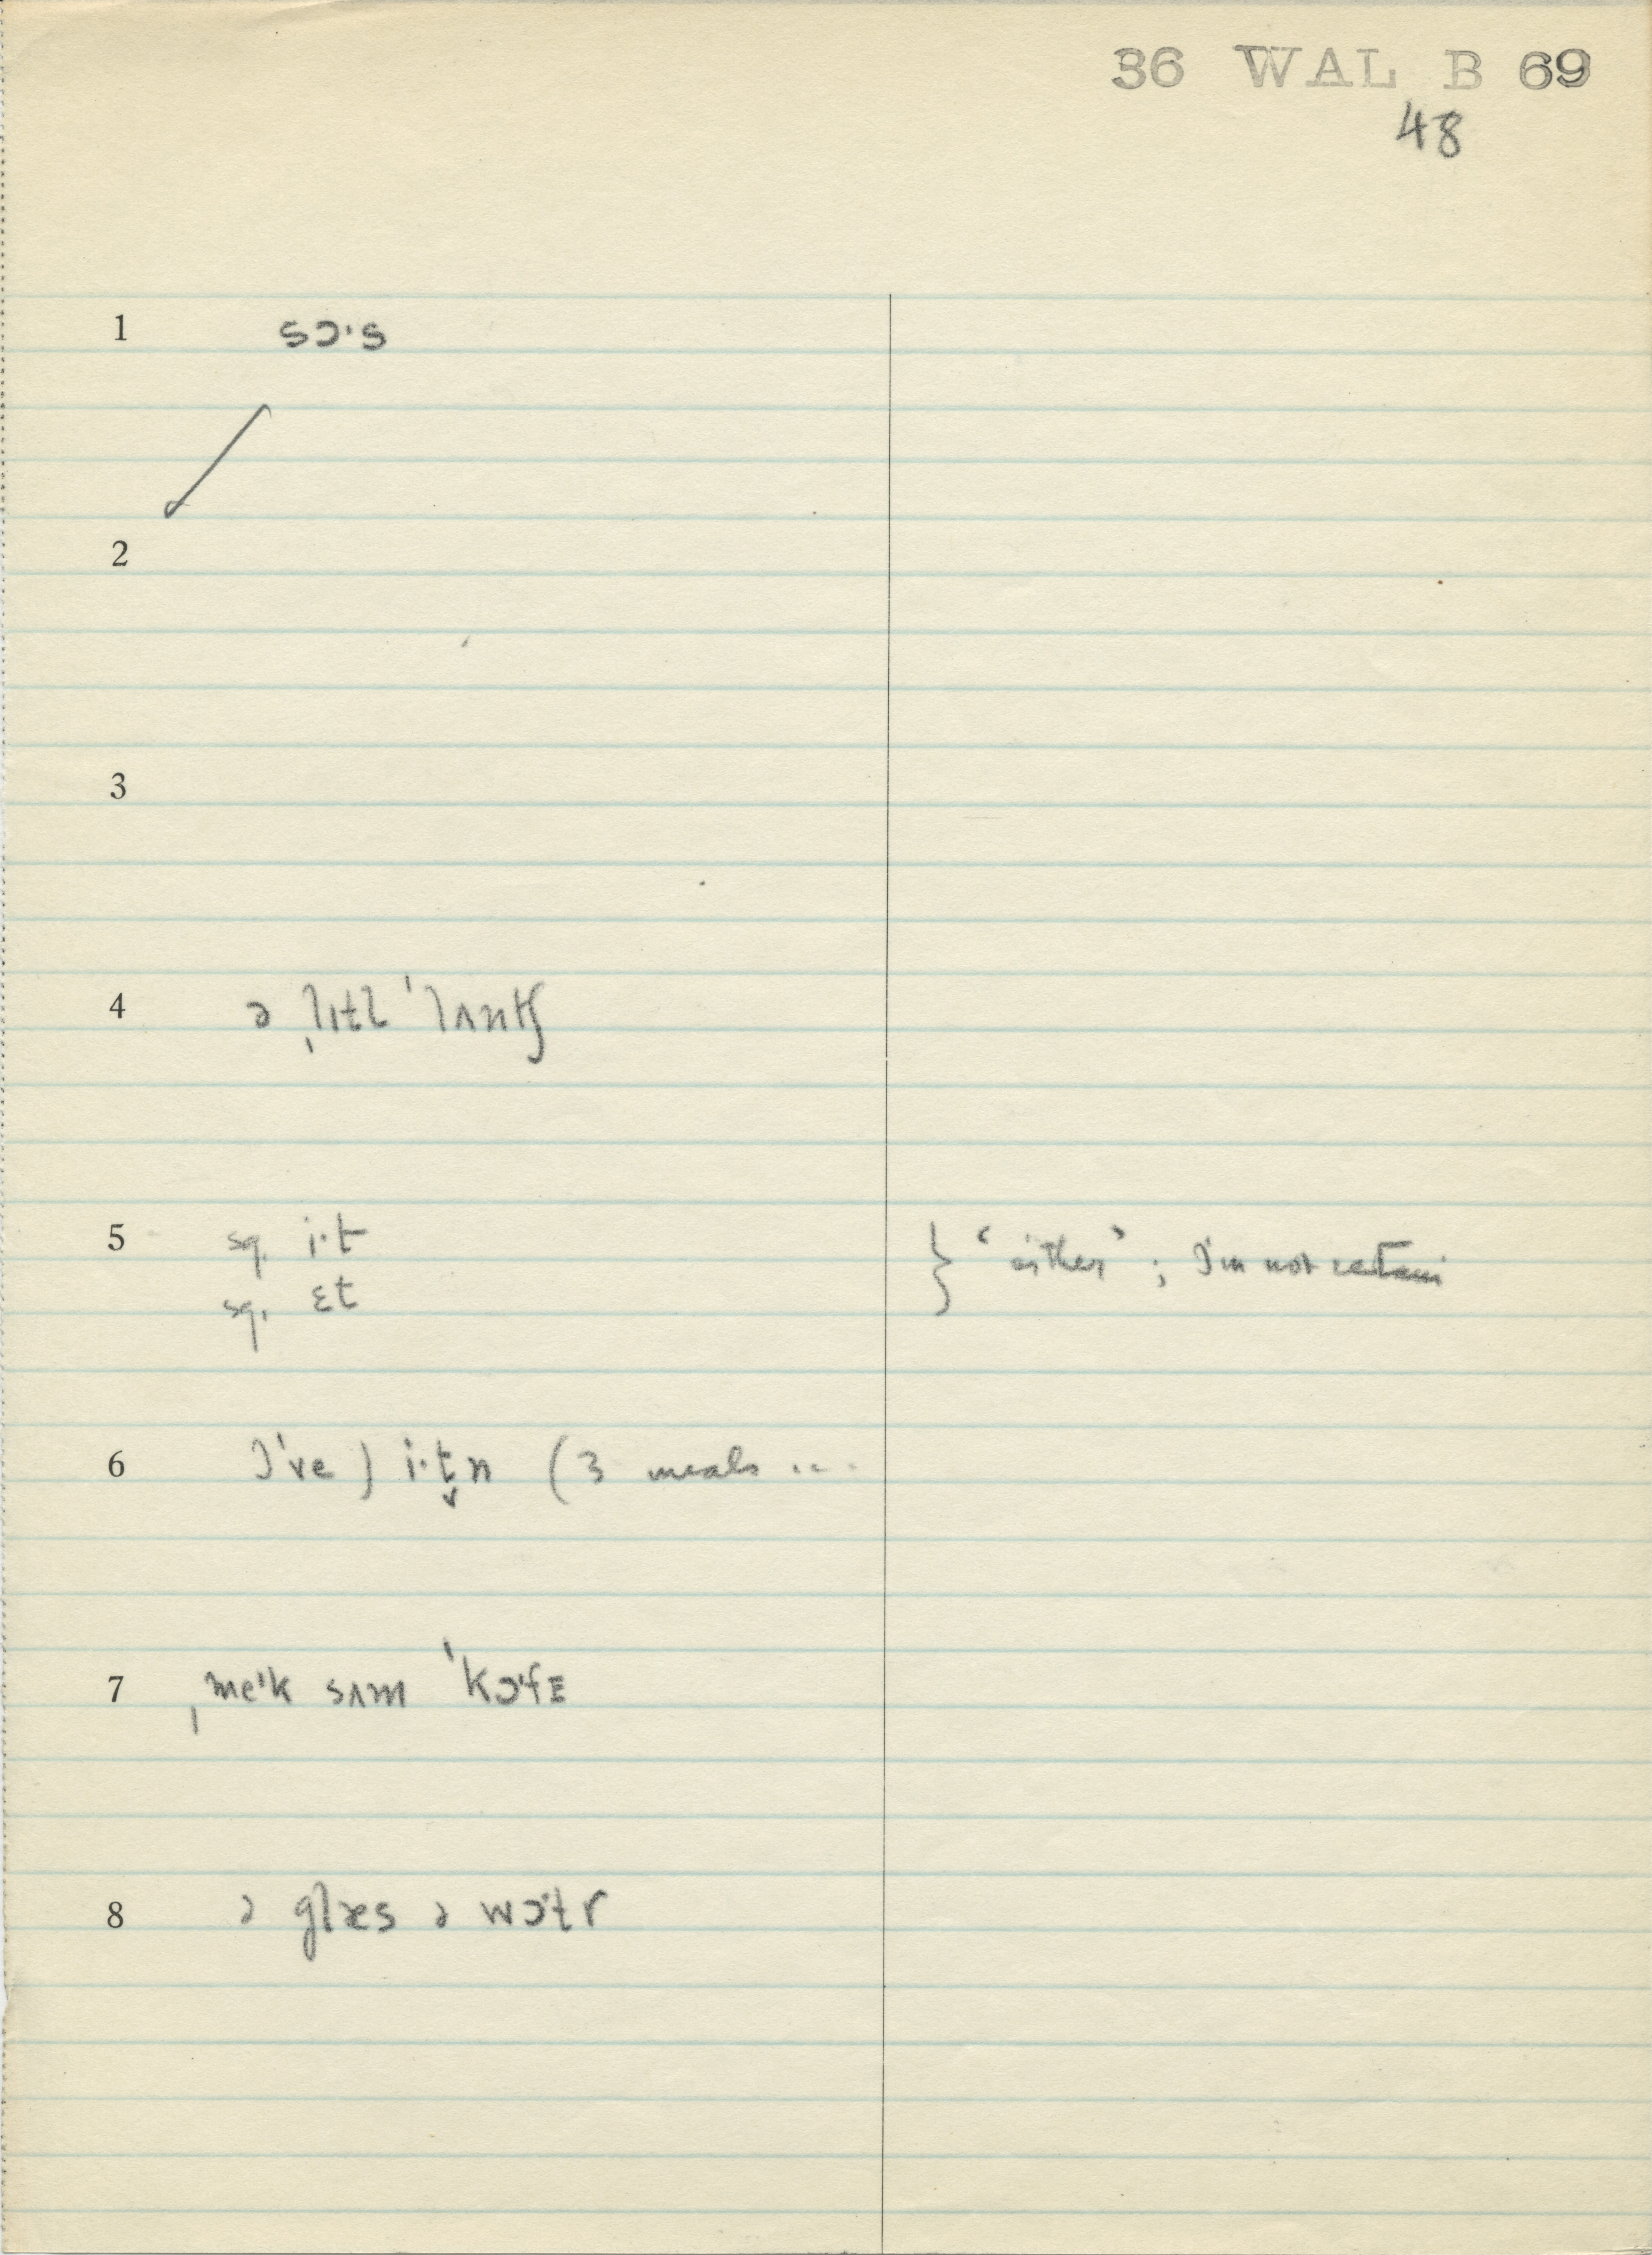 36 WAL B 69
48
1 sɔˑs
2
3
4 ə ˌlɪtl ˈlʌntʃ
5 sq. iˑt } "either"; I'm not certain
sq. ɛt
6 I've) iˑt̬n (3 meals ...
7 ˌmeˈk sʌm ˈkɔˑfɪ
8 ə glæs ə wɔˑt̬r